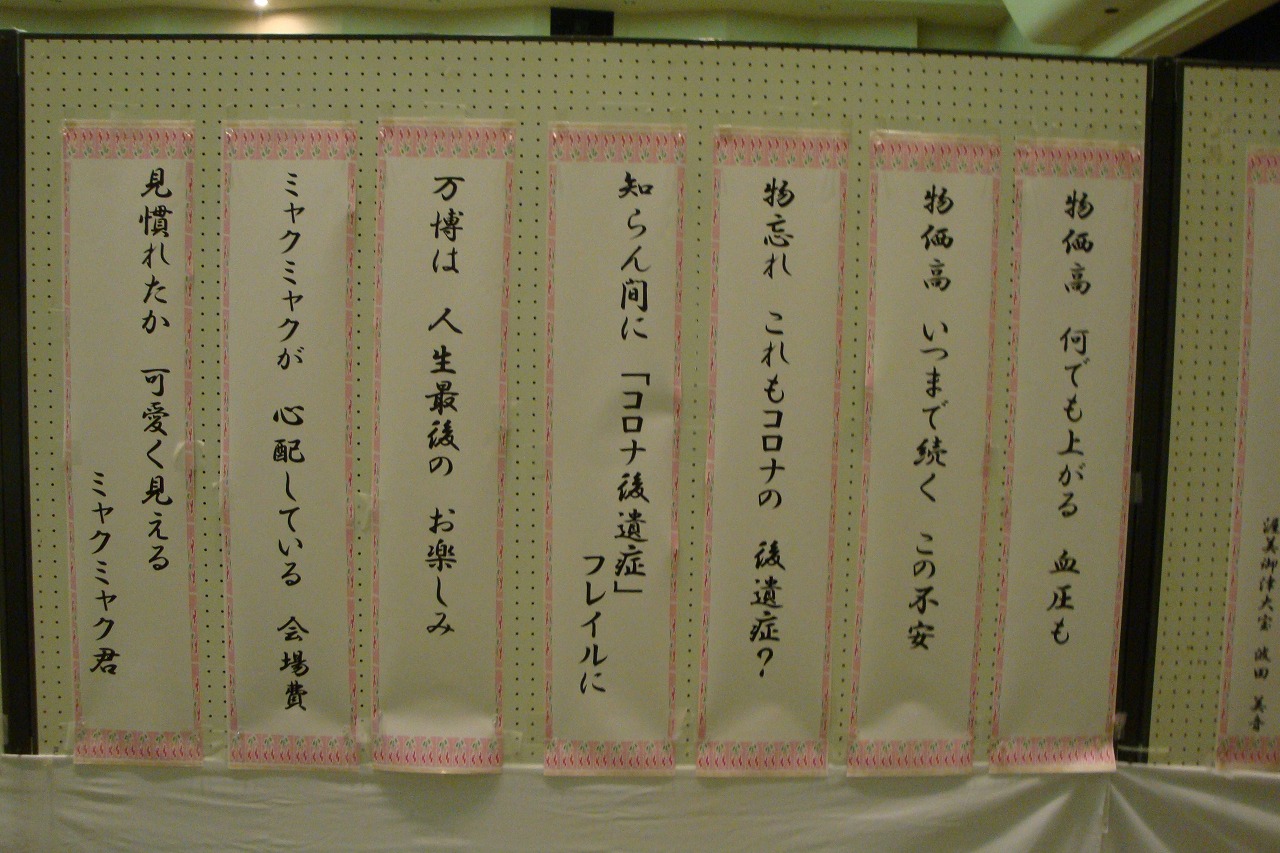 物価高　何でも上がる　血圧も
物価高　いつまで続く　この不安
物忘れ　これもコロナの　後遺症？
知らん間に　「コロナ後遺症」
フレイルに
万博は　人生最後の　お楽しみ
ミャクミャクが　心配している　会場費
見慣れたか　可愛く見える
ミャクミャク君